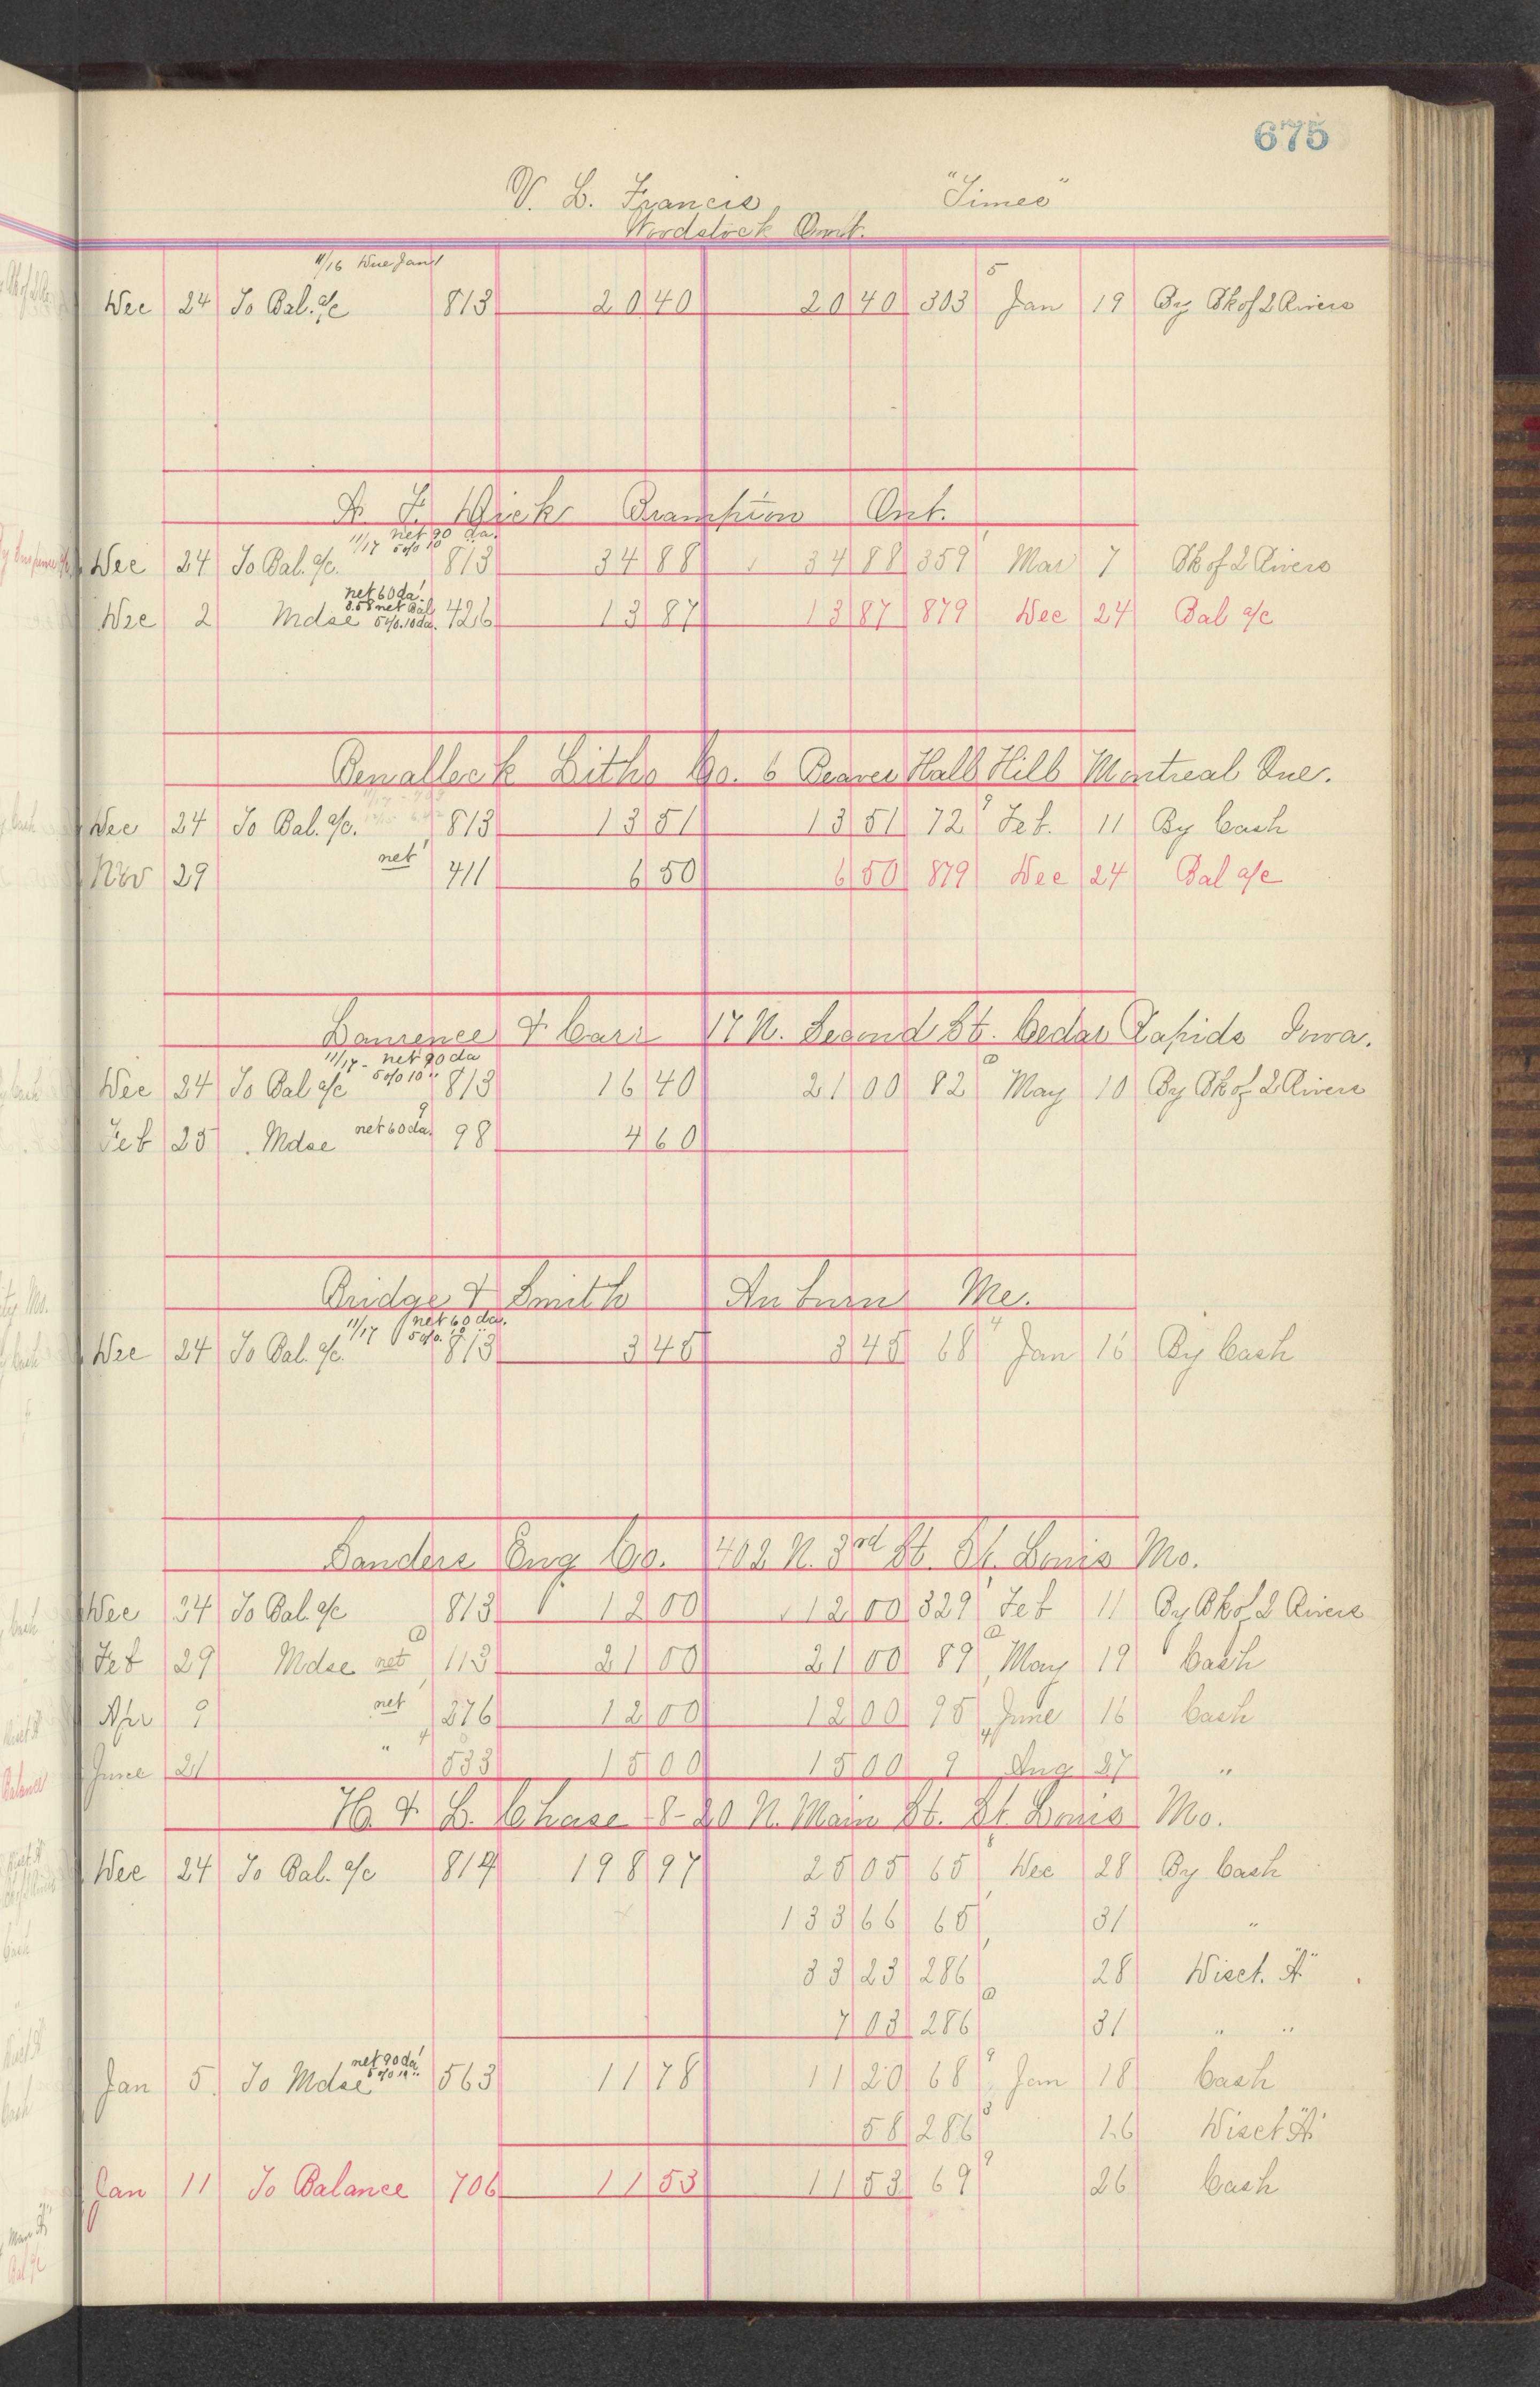 675
V. L. Francis "Times"
Woodstock Ont.
11/16 Due Jan 1
Dec 24 To Bal. a/c 813 20 40 20 40 303 5 Jan 19 By Bk of 2 Rivers
A. F. Dick Brampton Ont.
11/17 net 90 da.
5 o/o 10
Dec 24 To Bal. a/c. 813 34 88 34 88 359 Mar 7 Bk of 2 Rivers
net 60 da.
8.58 net Bal
Dec 2 Mdse 5 o/o. 10 da. 426 13 87 13 87 879 Dec 24 Bal a/c
Benallack Litho Co. 6 Beaver Hall Hill Montreal Que.
Dec 24 To Bal. a/c. 813 13 51 13 51 72 9 Feb. 11 By Cash
Nov 29 net 411 6 50 6 50 879 Dec 24 Bal a/c
Laurence & Carr 17 N. Second St. Cedar Rapids Iowa.
11/17 - net 90 da
5 o/o 10 "
Dec 24 To Bal a/c 813 16 40 21 00 82 May 10 By Bk of 2 Rivers
Feb 25 . Mdse net 60 da. 9 98 4 60
Bridge & Smith Auburn Me.
11/17 net 60 da.
5 o/o. 10 "
Dec 24 To Bal. a/c. 813 3 45 3 45 68 4 Jan 16 By Cash
Sanders Eng Co. 402 N. 3rd St. St. Louis Mo.
Dec 24 To Bal. a/c 813 12 00 12 00 329 Feb 11 By Bk of 2 Rivers
Feb 29 Mdse net 113 21 00 21 00 89 May 19 Cash
Apr 9 net 276 12 00 12 00 95 June 16 Cash
June 21 " 4 533 15 00 15 00 9 4 Aug 27 "
H. & L. Chase 8-20 N. Main St. St. Louis Mo.
Dec 24 To Bal. a/c 814 198 97 25 05 65 8 Dec 28 By Cash
133 66 65 31 "
33 23 286 28 Disct. "A"
7 03 286 31 " "
net 90 da
5 o/o 10 "
Jan 5. To Mdse 563 11 78 11 20 68 9 Jan 18 Cash
58 286 3 26 Disct "A"
Jan 11 To Balance 706 11 53 11 53 69 9 26 Cash